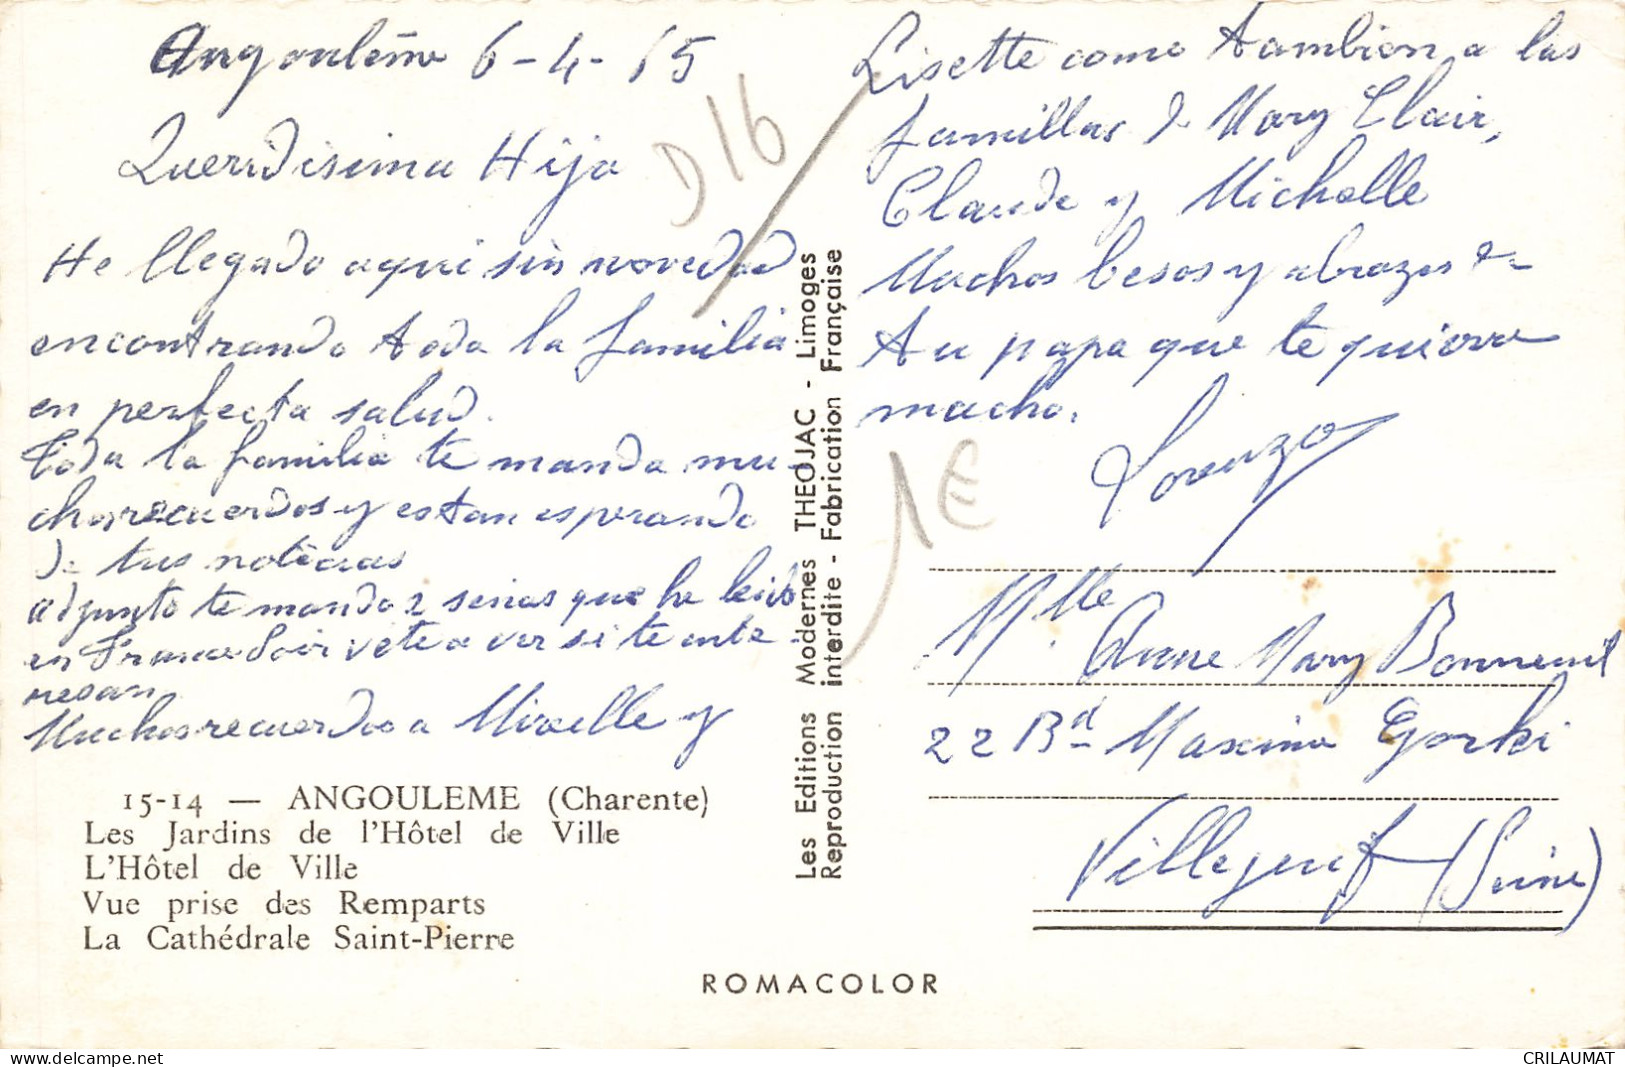 Angoulême 6-4-65
Queridisima Hija
He llegado aqui sin novedad
encontrando toda la familia
en perfecta salud.
Toda la familia te manda mu
chos recuerdos y estan esperando
de tus noticias
adjunto te mando 2 senas que he leido
en France Soir vete a ver si te inte
resan
Muchos recuerdos a Mirelle y
Lisette como tambien a las
familles de Mary Clair,
Claude y Michelle
Muchos besos y abrazos de
tu papa que te quiere
mucho.
Lorenzo
D16
1E
Mlle Anne Mary Bonneuil
22 Bd Maxime Gorki
Villejuif (Seine)
15-14 — ANGOULEME (Charente)
Les Jardins de l'Hôtel de Ville
L'Hôtel de Ville
Vue prise des Remparts
La Cathédrale Saint-Pierre
Les Editions Modernes THEOJAC - Limoges
Reproduction interdite - Fabrication Française
ROMACOLOR
www.delcampe.net
CRILAUMAT